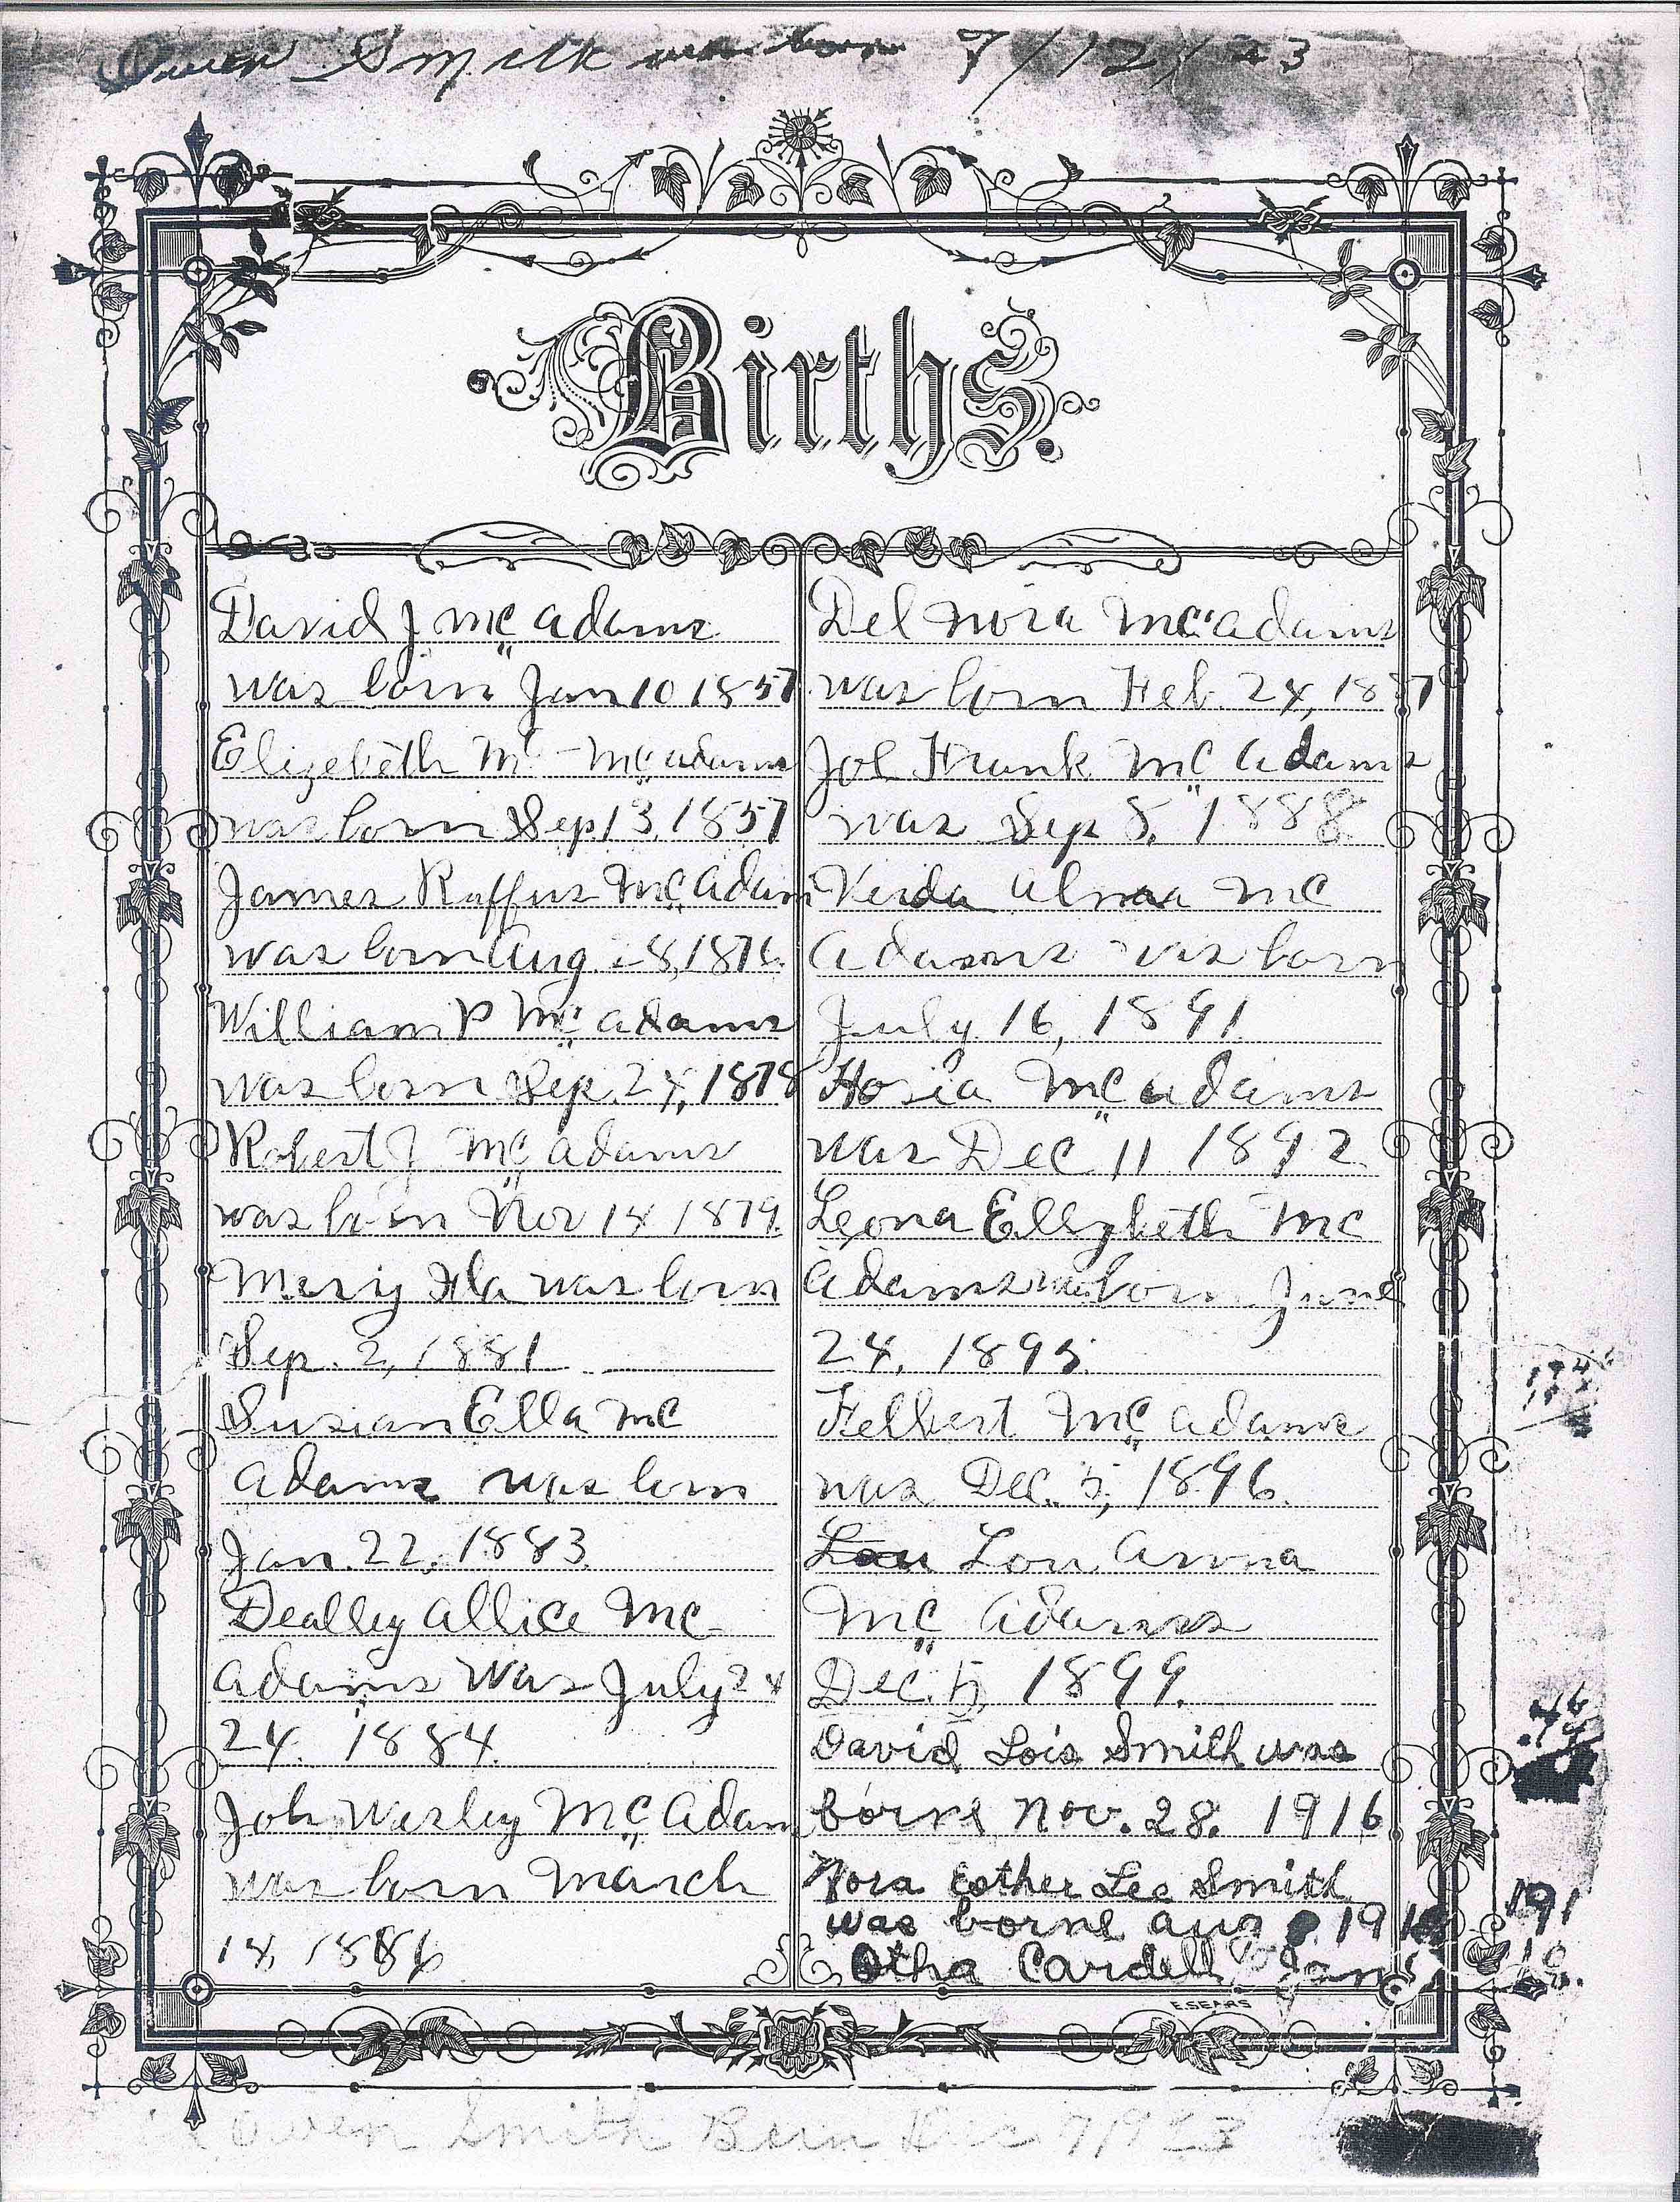 Owen Smith was born 7/12/23
Births.
David J Mc adams
was born Jan 10 1857
Elizebeth Mc Mc adams
was born Sep 13, 1857
James Ruffus Mc Adam
was born Aug. 28, 1876
William P Mc adams
was born Sep. 24, 1878
Robert J Mc adams
was born Nov 14 1879
Mary Ida was born
Sep. 2, 1881
Susian Ella Mc
adams was born
Jan. 22, 1883
Dealley Allice Mc
adams Was July 24
24. 1884
Joh Wesley Mc Adam
was born March
14, 1886
Del Nora Mc adams
was born Feb. 24, 1887
Joe Frank Mc adams
was Sep 5, 1888
Verda Almaa Mc
adams was born
July 16, 1891
Hosia Mc adams
was Dec 11 1892
Leona Ellyzbeth Mc
adams was born June
24, 1895
Felbert Mc adams
was Dec. 5, 1896.
Lou Lou Anna
Mc adams
Dec. 5, 1899.
David Lois Smith was
borne Nov. 28. 1916
Nora Esther Lee Smith
was borne aug 191
Otha Cardell Jan
191
E.SEARS
Owen Smith Born Dec 7 1923